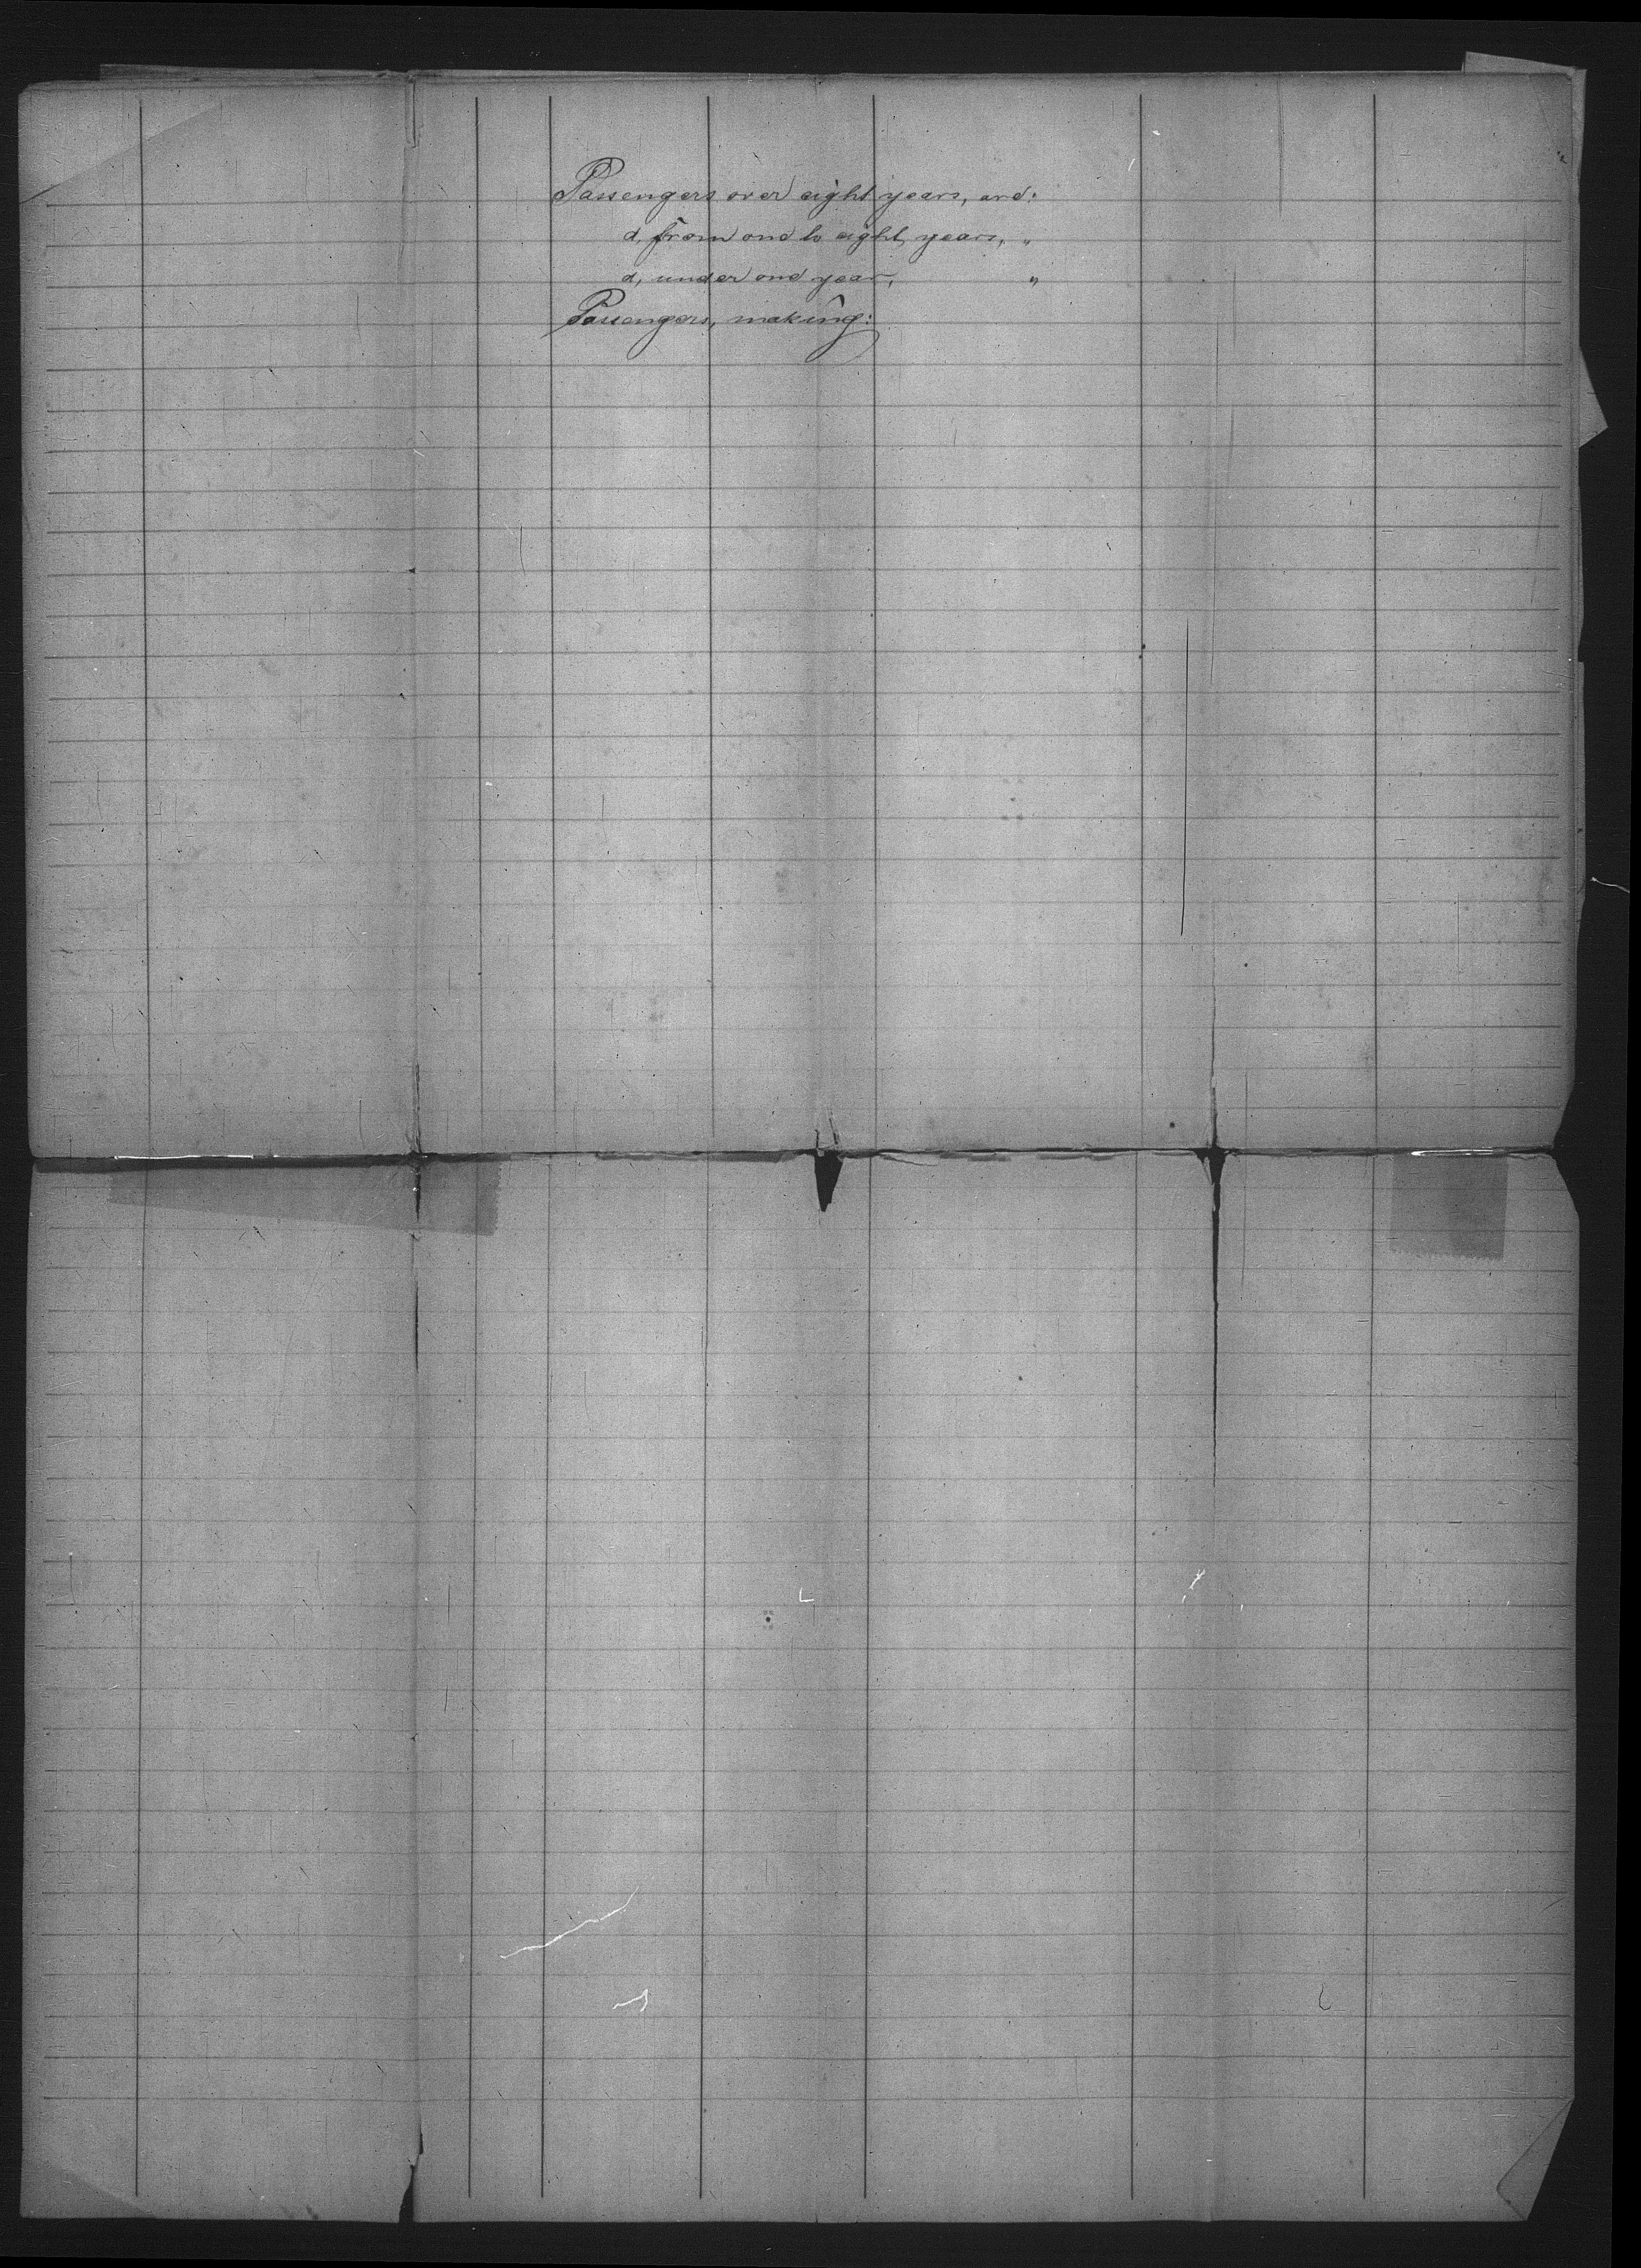 Passengers over eight years, and:
d, from one to eight years, "
d, under one year, "
Passengers, making: